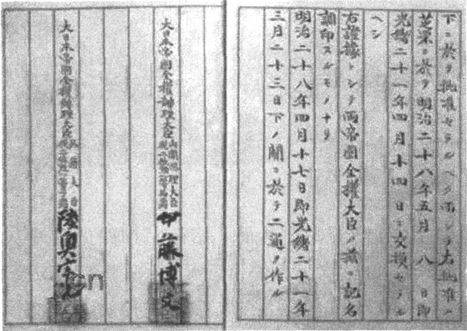 下ニ於テ批准セラルヘク而シテ右批准ハ
芝罘ニ於テ明治二十八年五月八日即
光緒二十一年四月十四日ニ交換セラル
ヘシ
右證據トシテ兩帝國全權大臣ハ茲ニ記名
調印スルモノナリ
明治二十八年四月十七日即光緒二十一年
三月二十三日下ノ關ニ於テ二通ヲ作ル
大日本帝國全權辨理大臣內閣總理大臣 伊藤博文
大日本帝國全權辨理大臣外務大臣 陸奧宗光
cn